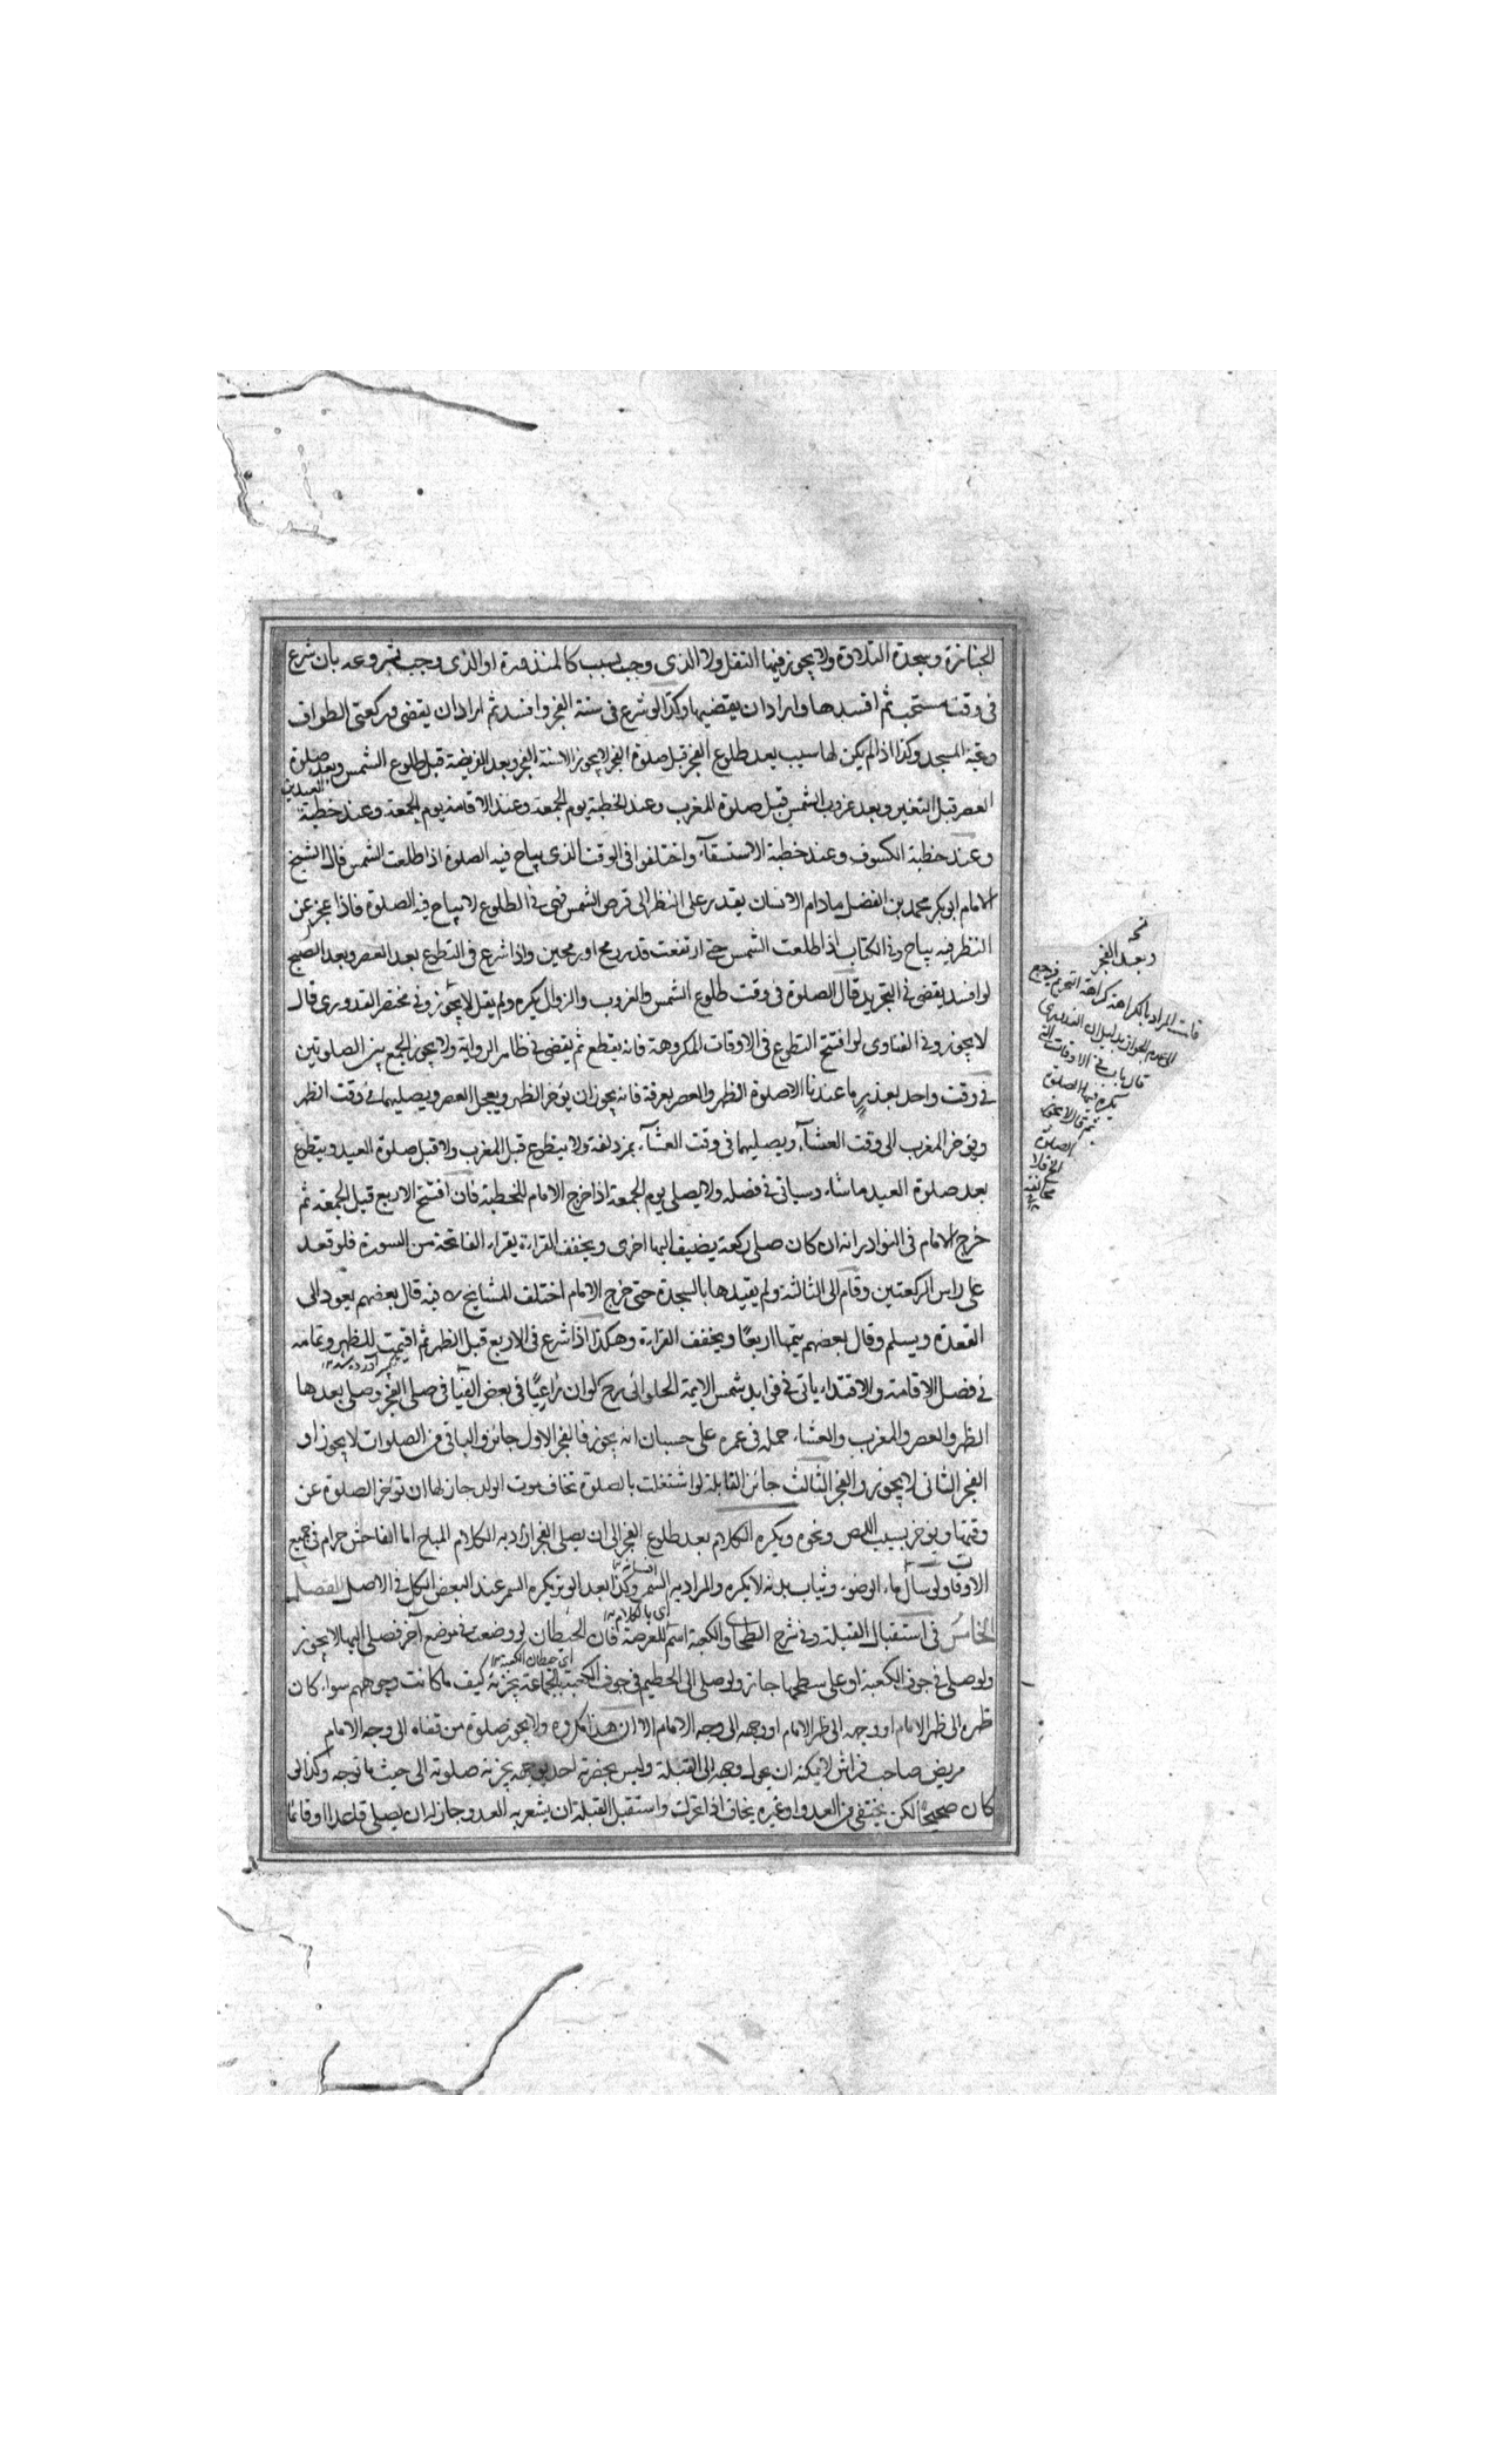 الجنازة وسجدة التلاوة ولا يجوز فيها النفل ولا الذى وجب بسبب كالمنذورة او الذى وجب بشروعه بان شرع
فى وقت مستحب ثم افسدها واراد ان يقضيها وكذا لو شرع فى سنة الفجر وافسد ثم اراد ان يقضى وركعتى الطواف
وتحية المسجد وكذا اذا لم يكن لها سبب بعد طلوع الفجر قبل صلوة الفجر لا يجوز الا سنة الفجر وبعد الفريضة قبل طلوع الشمس وبعد صلوة
العصر قبل التغير وبعد غروب الشمس قبل صلوة المغرب وعند الخطبة يوم الجمعة وعند الاقامة يوم الجمعة وعند خطبة العيدين
وعند خطبة الكسوف وعند خطبة الاستسقاء واختلفوا فى الوقت الذى يباح فيه الصلوة اذا طلعت الشمس قال الشيخ
الامام ابو بكر محمد بن الفضل ما دام الانسان يقدر على النظر الى قرص الشمس فهى فى الطلوع لا يباح فيه الصلوة فاذا عجز عن
النظر فيه يباح وفى الكتاب اذا طلعت الشمس حتى ارتفعت قدر رمح او رمحين واذا شرع فى التطوع بعد العصر وبعد الصبح
لو افسد يقضى فى التجريد قال الصلوة فى وقت طلوع الشمس والغروب والزوال يكره ولم يقل لا يجوز وفى مختصر القدورى قال
لا يجوز وفى الفتاوى لو افتتح التطوع فى الاوقات المكروهة فانه يقطع ثم يقضى فى ظاهر الرواية ولا يجوز الجمع بين الصلوتين
فى وقت واحد بعذر ما عندنا الا صلوة الظهر والعصر بعرفة فانه يجوز ان يؤخر الظهر ويعجل العصر ويصليهما فى وقت الظهر
ويؤخر المغرب الى وقت العشاء ويصليهما فى وقت العشاء بمزدلفة ولا يتطوع قبل المغرب ولا قبل صلوة العيد ويتطوع
بعد صلوة العيد ما شاء وسياتى فى فصله ولا يصلى يوم الجمعة اذا خرج الامام للخطبة فان افتتح الاربع قبل الجمعة ثم
خرج الامام فى النوادر انه ان كان صلى ركعة يضيف اليها اخرى ويخفف القراءة يقراء الفاتحة من السورة فلو قعد
على راس الركعتين وقام الى الثالثة ولم يقيدها بالسجدة حتى خرج الامام اختلف المشايخ فيه قال بعضهم يعود الى
القعدة ويسلم وقال بعضهم يتمها اربعا ويخفف القراءة وهكذا اذا شرع فى الاربع قبل الظهر ثم اقيمت للظهر وتمامه
فى فصل الاقامة والاقتداء ياتى فى فوايد شمس الايمة الحلوائى رح لو ان راعيا فى بعض الفيافى صلى الفجر وصلى بعدها
الظهر والعصر والمغرب والعشاء جملة فى عمره على حسبان انه يجوز فالفجر الاول جائز والباقى من الصلوات لا يجوز او
الفجر الثانى لا يجوز والفجر الثالث جائز القابلة لو اشتغلت بالصلوة تخاف موت الولد جاز لها ان تؤخر الصلوة عن
وقتها ويؤخر بسبب اللص ونحوه ويكره الكلام بعد طلوع الفجر الى ان يصلى الفجر اراد به الكلام المباح اما الفاحش حرام فى جميع
الاوقات ولو سأل ماء الوضوء وثياب بدنه لا يكره والمراد به السمر وكذا بعد الوتر يكره السمر عند البعض الكل فى الاصل الفصل
الخامس فى استقبال القبلة وفى شرح الطحاوى والكعبة اسم للعرصة فان الحيطان لو وضعت فى موضع آخر فصلى اليها لا يجوز
اى حيطان الكعبة
ولو صلى فى جوف الكعبة او على سطحها جاز ولو صلى الى الحطيم فى جوف الكعبة بالجماعة يجزئه كيف ما كانت وجوههم سواء كان
ظهره الى ظهر الامام او وجهه الى ظهر الامام او وجهه الى وجه الامام الا ان هذا مكروه ولا يجوز صلوة من قفاه الى وجه الامام
مريض صاحب فراش لا يمكنه ان يحول وجهه الى القبلة وليس بحضرته احد يوجهه يجزئه صلوته الى حيث ما توجه وكذا ان
كان صحيحا لكن يختفى من العدو او غيره يخاف ان تحرك واستقبل القبلة ان يشعر به العدو جاز له ان يصلى قاعدا او قائما
وبعد الفجر
قلت المراد بالكراهة كراهة التحريم فيرجع
الى عدم الجواز بدليل ان القدورى
قال باب فى الاوقات التى
تكره فيها الصلوة
ثم قال لا يجوز
الصلوة
الخ فلا
مخالفة